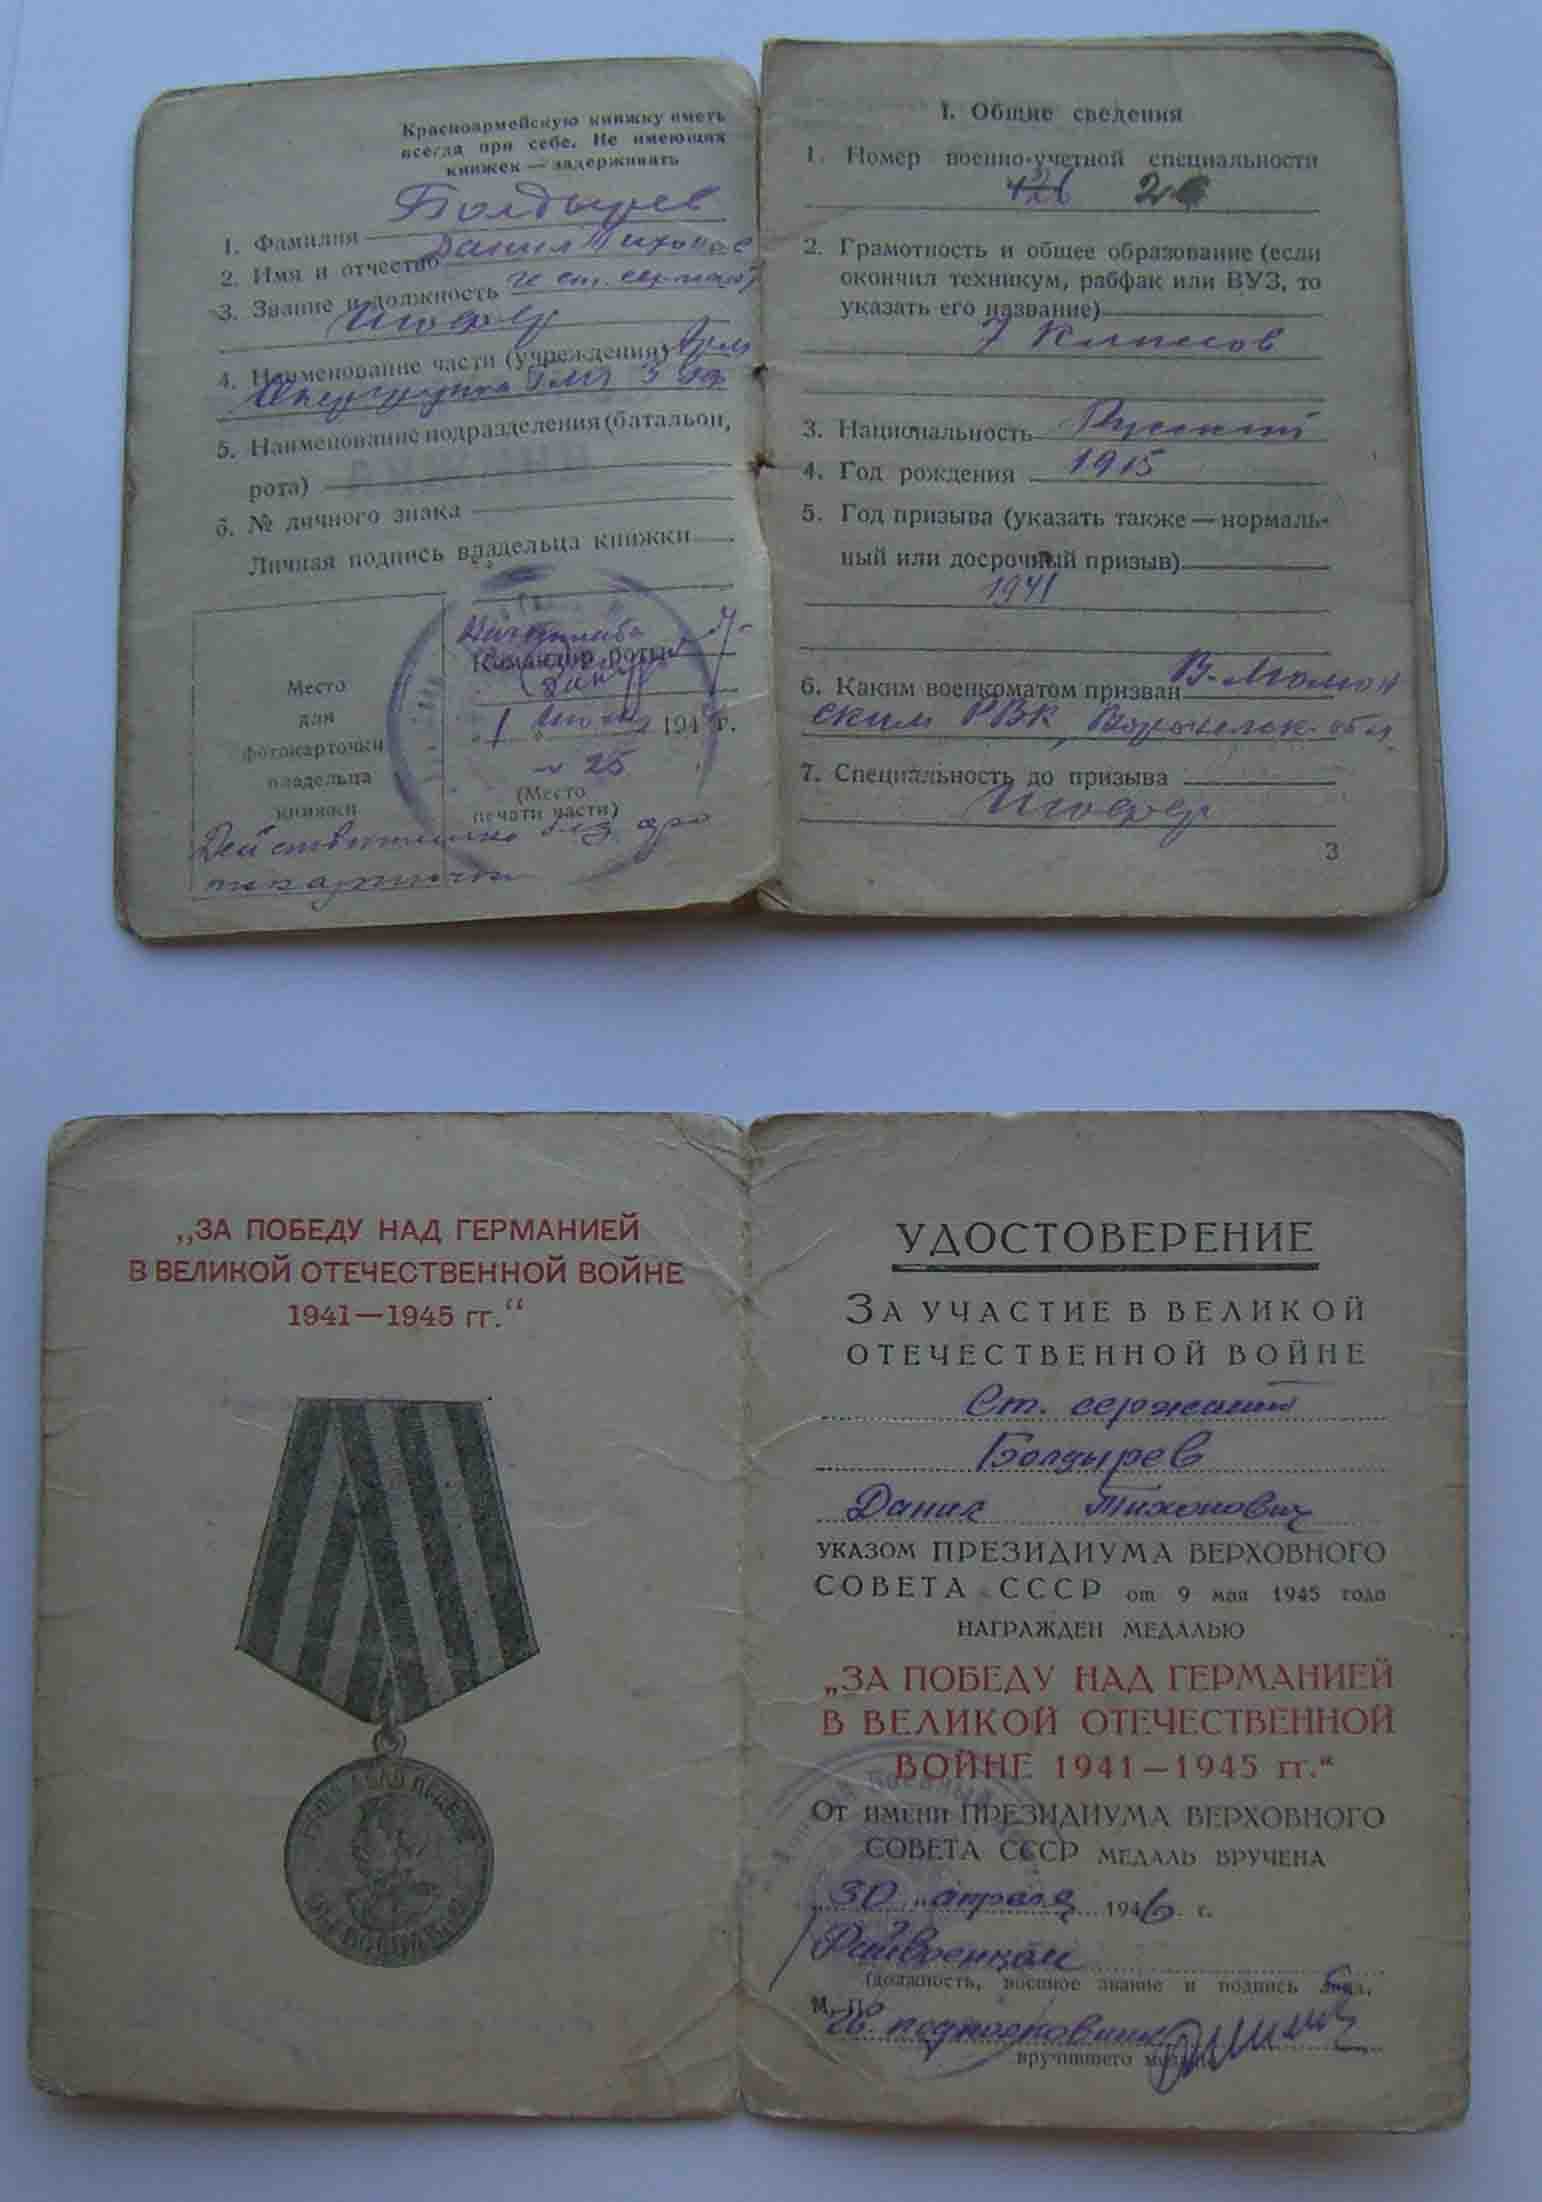 Красноармейскую книжку иметь
всегда при себе. Не имеющих
книжек — задерживать
1. Фамилия Болдырев
2. Имя и отчество Данил Тихонов
3. Звание и должность ст. сержант
Шофер
4. Наименование части (учреждения)
5. Наименование подразделения (батальон,
рота)
6. № личного знака
Личная подпись владельца книжки
Место
для
фотокарточки
владельца
книжки
Командир роты
1 194 г.
25
(Место
печати части)
Действительно без фо
токарточки
I. Общие сведения
1. Номер военно-учетной специальности
2. Грамотность и общее образование (если
окончил техникум, рабфак или ВУЗ, то
указать его название)
7 классов
3. Национальность Русский
4. Год рождения 1915
5. Год призыва (указать также — нормаль-
ный или досрочный призыв)
1941
6. Каким военкоматом призван В-Мамон
ским РВК, Воронежск. обл.
7. Специальность до призыва
Шофер
3
„ЗА ПОБЕДУ НАД ГЕРМАНИЕЙ
В ВЕЛИКОЙ ОТЕЧЕСТВЕННОЙ ВОЙНЕ
1941—1945 гг.“
НАШЕ ДЕЛО ПРАВОЕ
МЫ ПОБЕДИЛИ
УДОСТОВЕРЕНИЕ
ЗА УЧАСТИЕ В ВЕЛИКОЙ
ОТЕЧЕСТВЕННОЙ ВОЙНЕ
Ст. сержант
Болдырев
Данил Тихонович
УКАЗОМ ПРЕЗИДИУМА ВЕРХОВНОГО
СОВЕТА СССР от 9 мая 1945 года
НАГРАЖДЕН МЕДАЛЬЮ
„ЗА ПОБЕДУ НАД ГЕРМАНИЕЙ
В ВЕЛИКОЙ ОТЕЧЕСТВЕННОЙ
ВОЙНЕ 1941—1945 гг.“
От имени ПРЕЗИДИУМА ВЕРХОВНОГО
СОВЕТА СССР МЕДАЛЬ ВРУЧЕНА
„30 „апреля 1946 г.
Райвоенком
(должность, военное звание и подпись лица,
М. П.
подполковник
вручившего медаль)